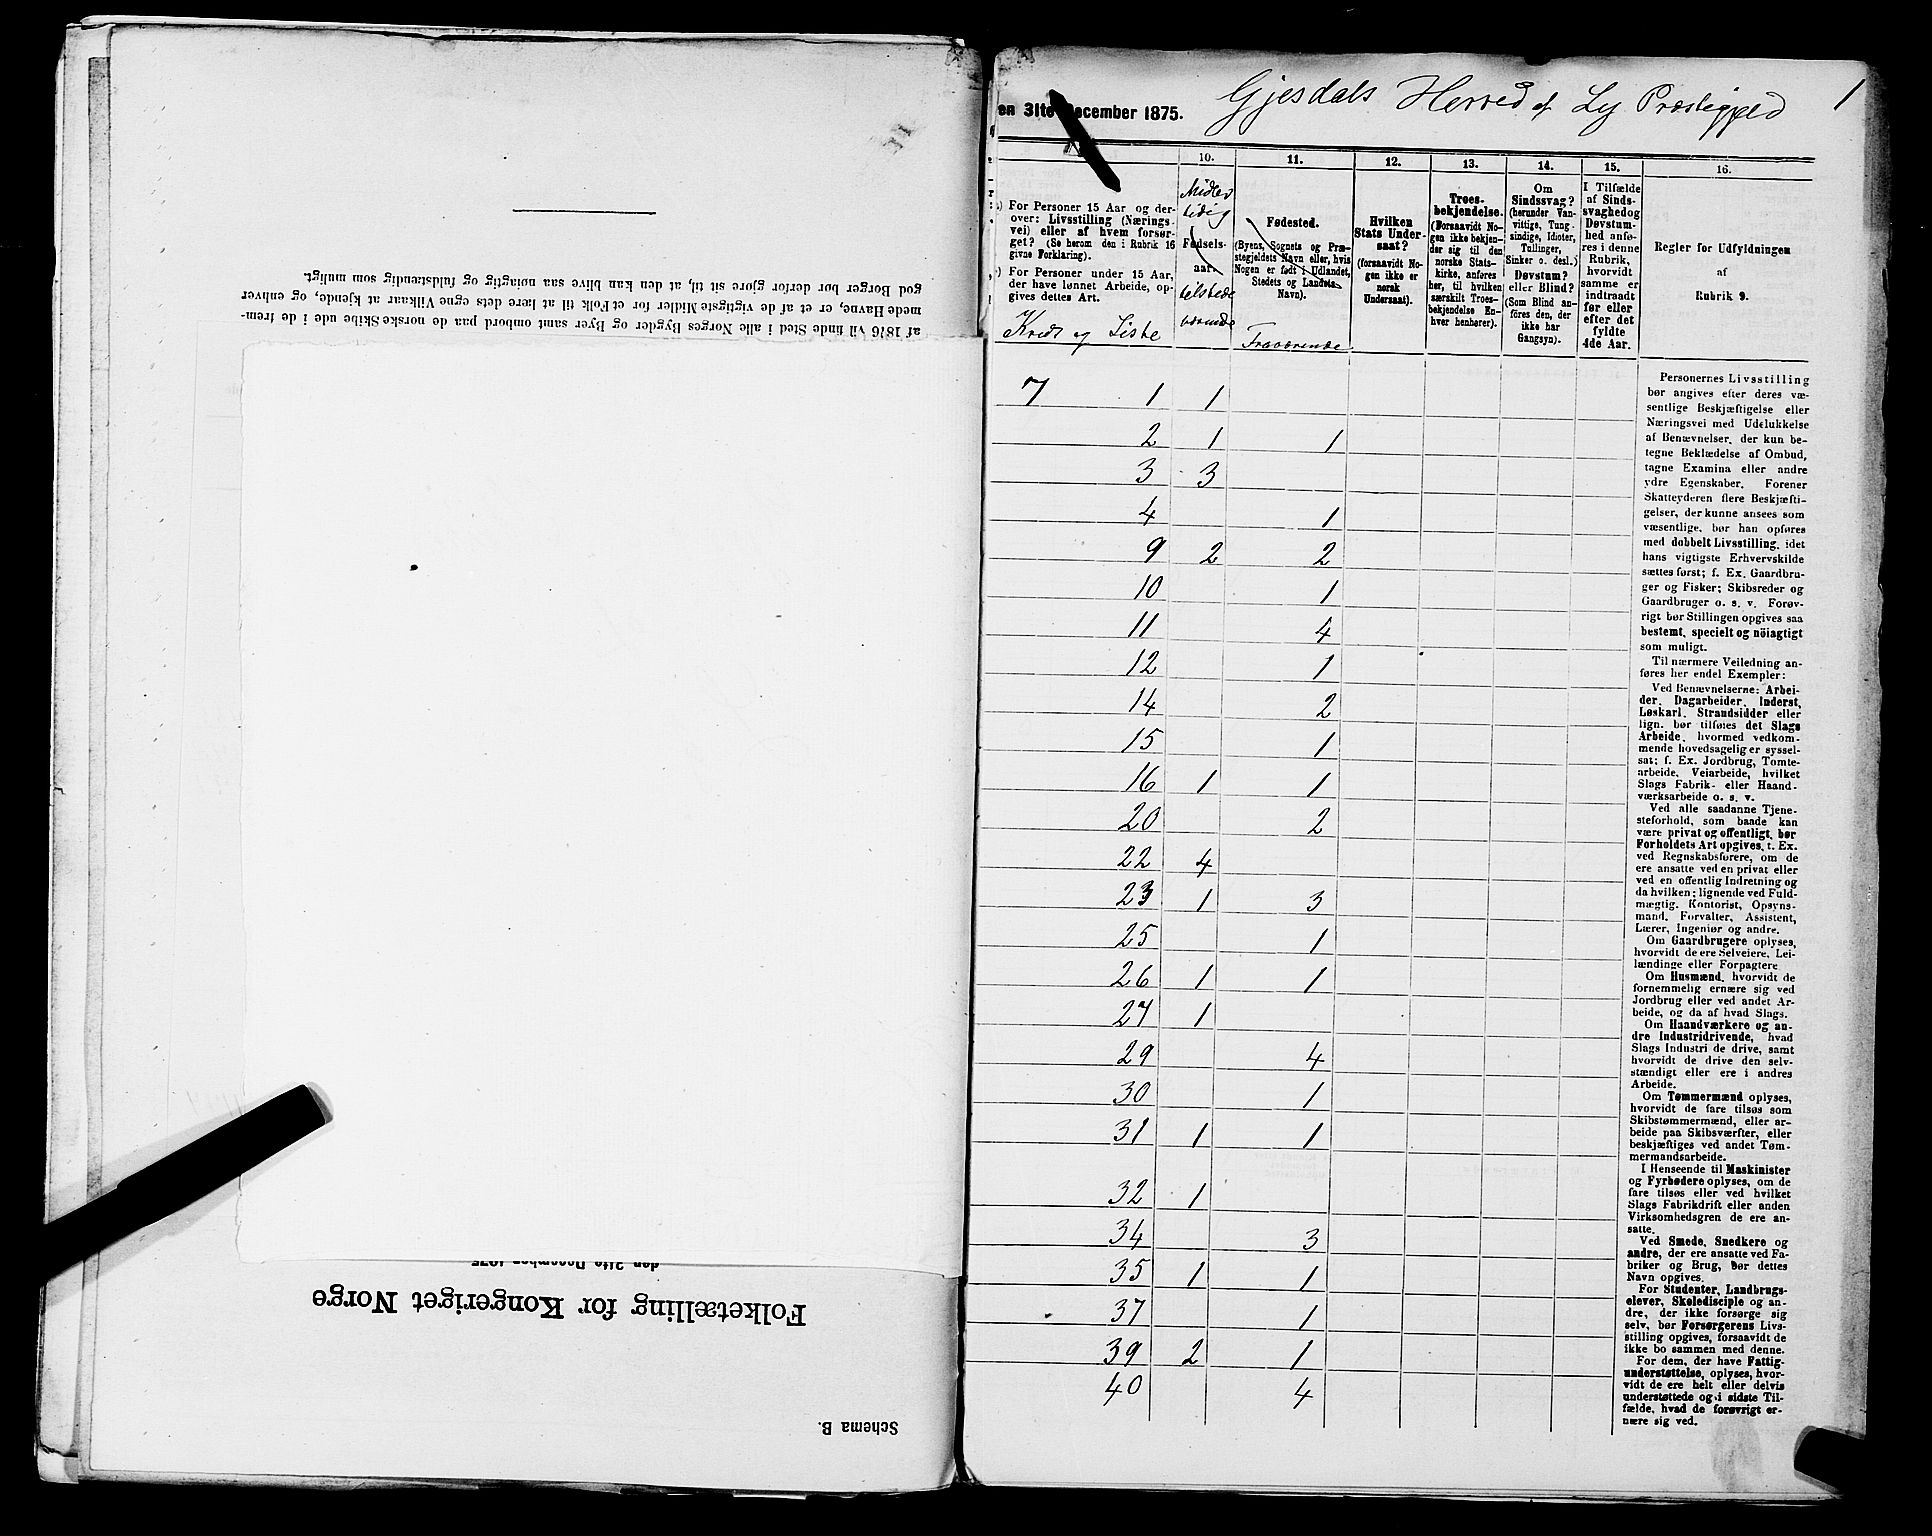 af 1876 vil finde Sted i alle Norges Bygder og Byer samt ombord paa de norske Skibe ude i de frem-
mede Havne, er et af de vigtigste Midler for et Folk til at lære dets egne Vilkaar at kjende, og enhver
god Borger bør derfor gjøre sit til, at den kan blive saa nøiagtig og fuldstændig som muligt.
den 31te December 1875
Folketælling for Kongeriget Norge
Schema B.
Gjesdals Herred af Ly Præstegjeld
1
en 31te December 1875.
10. 11. 12. 13. 14. 15. 16.
For Personer 15 Aar og der-
over: Livsstilling (Nærings-
vei) eller af hvem forsør-
get? (Se herom den i Rubrik 16
givne Forklaring).
For Personer under 15 Aar,
der have lønnet Arbeide, op-
gives dettes Art.
Kreds og Liste
Midler
tidig
Fødsels-
aar.
tilstede
værende
Fødested.
(Byens, Sognets og Præ-
stegjeldets Navn eller, hvis
Nogen er født i Udlandet,
Stedets og Landets
Navn).
Fraværende
Hvilken
Stats Under-
saat?
(forsaavidt No-
gen ikke er
norsk
Undersaat).
Troes-
bekjendelse.
(Forsaavidt No-
gen ikke bekjen-
der sig til den
norske Stats-
kirke, anføres
her, til hvilken
særskilt Troes-
bekjendelse En-
hver henhører).
Om
Sindssvag?
(herunder Van-
vittige, Tung-
sindige, Idioter,
Tullinger,
Sinker o. desl.)
Døvstum?
eller Blind?
(Som Blind an-
føres den, der
ikke har
Gangsyn).
I Tilfælde
af Sinds-
svaghed og
Døvstum-
hed anfø-
res i denne
Rubrik,
hvorvidt
samme er
indtraadt
før eller
efter det
fyldte
4de Aar.
Regler for Udfyldningen
af
Rubrik 9.
7 1 1
2 1 1
3 3
4 1
9 2 2
10 1
11 4
12 1
14 2
15 1
16 1 1
20 2
22 4
23 1 3
25 1
26 1 1
27 1
29 4
30 1
31 1 1
32 1
34 3
35 1 1
37 1
39 2 1
40 4
Personernes Livsstilling
bør angives efter deres væ-
sentlige Beskjæftigelse eller
Næringsvei med Udelukkelse
af Benævnelser, der kun be-
tegne Beklædelse af Ombud,
tagne Examina eller andre
ydre Egenskaber. Forener
Skatteyderen flere Beskjæfti-
gelser, der kunne ansees som
væsentlige, bør han opføres
med dobbelt Livsstilling, idet
hans vigtigste Erhvervskilde
sættes først; f. Ex. Gaardbru-
ger og Fisker; Skibsreder og
Gaardbruger o. s. v. Forøv-
rigt bør Stillingen opgives saa
bestemt, specielt og nöiagtigt
som muligt.
Til nærmere Veiledning an-
føres her endel Exempler:
Ved Benævnelserne: Arbei-
der, Dagarbeider, Inderst,
Løskarl, Strandsidder eller
lign. bør tilføies det Slags
Arbeide, hvormed vedkom-
mende hovedsagelig er syssel-
sat; f. Ex. Jordbrug, Tomte-
arbeide, Veiarbeide, hvilket
Slags Fabrik- eller Haand-
værksarbeide o. s. v.
Ved alle saadanne Tjene-
steforhold, som baade kan
være privat og offentligt, bør
Forholdets Art opgives, t. Ex.
ved Regnskabsførere, om de
ere ansatte ved en privat eller
ved en offentlig Indretning og
da hvilken; lignende ved Fuld-
mægtig, Kontorist, Opsyns-
mand, Forvalter, Assistent,
Lærer, Ingeniør og andre.
Om Gaardbrugere oplyses,
hvorvidt de ere Selveiere, Lei-
lændinge eller Forpagtere
Om Husmænd, hvorvidt de
fornemmelig ernære sig ved
Jordbrug eller ved andet Ar-
beide, og da af hvad Slags.
Om Haandværkere og an-
dre Industridrivende, hvad
Slags Industri de drive, samt
hvorvidt de drive den selv-
stændigt eller ere i andres
Arbeide.
Om Tømmermænd oplyses,
hvorvidt de fare tilsøs som
Skibstømmermænd, eller ar-
beide paa Skibsværfter, eller
beskjæftiges ved andet Tøm-
mermandsarbeide.
I Henseende til Maskinister
og Fyrbødere oplyses, om de
fare tilsøs eller ved hvilket
Slags Fabrikdrift eller anden
Virksomhedsgren de ere an-
satte.
Ved Smede, Snedkere og
andre, der ere ansatte ved Fa-
briker og Brug, bør dettes
Navn opgives.
For Studenter, Landbrugs-
elever, Skoledisciple og an-
dre, der ikke forsørge sig
selv, bør Forsørgerens Livs-
stilling opgives, forsaavidt de
ikke bo sammen med denne.
For dem, der have Fattig-
understøttelse, oplyses, hvor-
vidt de ere helt eller delvis
understøttede og i sidste Til-
fælde, hvad de forøvrigt er-
nære sig ved.